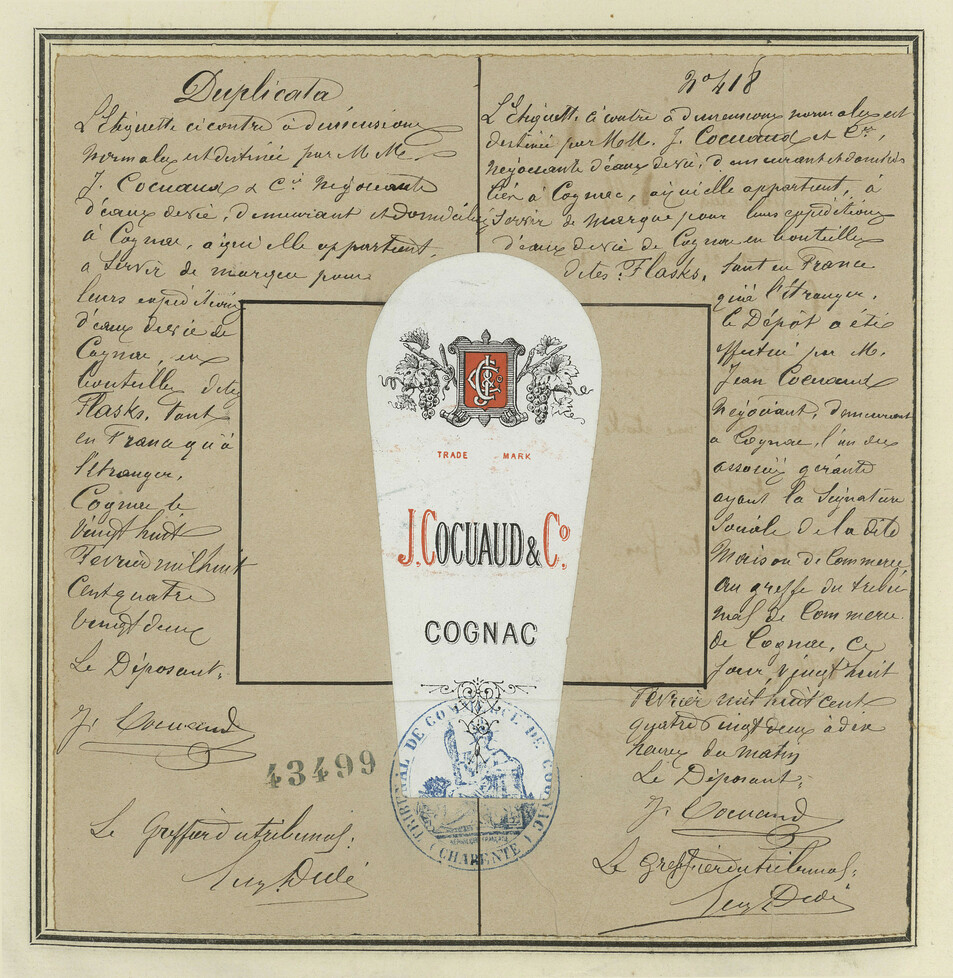 Duplicata
L'Etiquette ci contre à dimensions
normales est destinée par M.M.
J. Cocuaud & Cie Négociants
d'eaux de vie, demeurant et domiciliés
à Cognac, à qui elle appartient,
à servir de marque pour
leurs expéditions
d'eaux de vie de
Cognac, en
bouteilles dites
Flasks, tant
en France qu'à
l'étranger.
Cognac le
vingt huit
Février mil huit
cent quatre
vingt deux
Le Déposant:
J. Cocuaud
43499
Le Greffier du tribunal:
No 418
L'Etiquette ci contre à dimensions normales est
destinée par MM. J. Cocuaud et Cie,
négociants d'eaux de vie, demeurant et domici
liés à Cognac, à qui elle appartient, à
servir de marque pour leurs expéditions
d'eaux de vie de Cognac en bouteilles
dites Flasks, tant en France
qu'à l'étranger.
Le Dépôt a été
effectué par M.
Jean Cocuaud
négociant, demeurant
à Cognac, l'un des
associés gérants
ayant la signature
sociale de la dite
Maison de Commerce
au greffe du tribu
nal de Commerce
de Cognac, ce
jour, vingt huit
Février mil huit cent
quatre vingt deux à dix
heures du matin
Le Déposant:
J. Cocuaud
Le Greffier du tribunal:
TRADE MARK
J. COCUAUD & Co.
COGNAC
TRIBUNAL DE COMMERCE DE COGNAC
(CHARENTE)
RÉPUBLIQUE FRANÇAISE